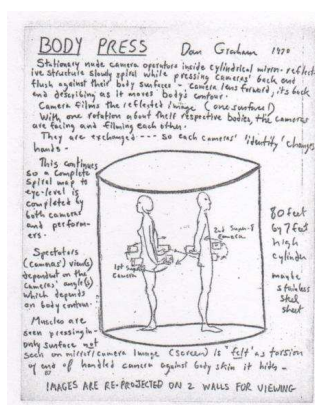 BODY PRESS Dan Graham 1970
Stationary nude camera operators inside cylindrical mirror-reflect-
ive structure slowly spiral while pressing cameras' back end
flush against their body surfaces - camera lens forward, its back
end describing as it moves body's contour.
Camera films the reflected image (one surface!)
With one rotation about their respective bodies, the cameras
are facing and filming each other.
They are exchanged --- so each cameras' 'identity' changes
hands -
This continues
so a complete
spiral map to
eye-level is
completed by
both cameras
and perform-
ers.
Spectators
(cameras') view(s)
dependent on the
cameras' angle(s)
which depends
on body contour.
Muscles are
seen pressing in-
only surface not
seen on mirror/camera image (screen) is "felt" as torsion
of end of handled camera against body skin it hides -
1st Super-8
Camera
2nd Super-8
Camera
80 feet
by 7 feet
high
cylinder
maybe
stainless
steel
sheet
IMAGES ARE RE-PROJECTED ON 2 WALLS FOR VIEWING